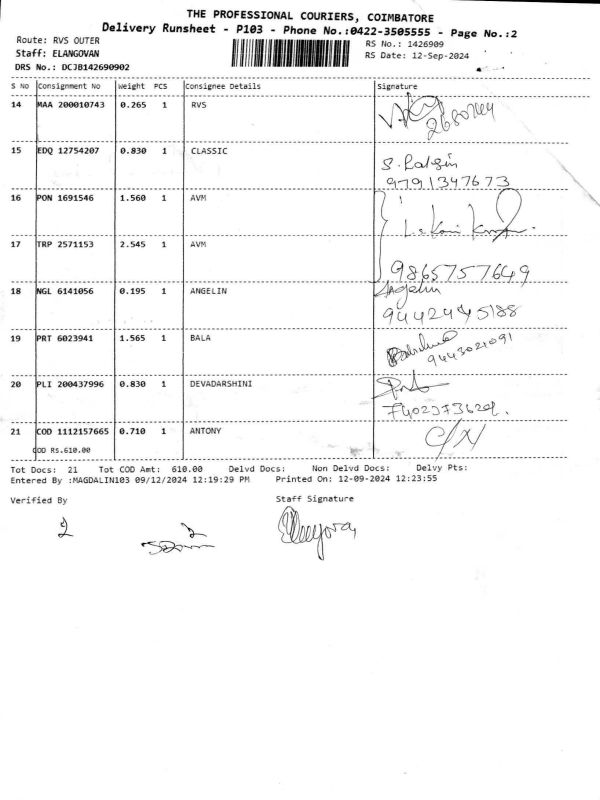 THE PROFESSIONAL COURIERS, COIMBATORE
Delivery Runsheet - P103 - Phone No.:0422-3505555 - Page No.:2
Route: RVS OUTER RS No.: 1426909
Staff: ELANGOVAN RS Date: 12-Sep-2024
DRS No.: DCJB142690902
S No Consignment No Weight PCS Consignee Details Signature
14 MAA 200010743 0.265 1 RVS
15 EDQ 12754207 0.830 1 CLASSIC
9791347673
16 PON 1691546 1.560 1 AVM
17 TRP 2571153 2.545 1 AVM
9865757649
18 NGL 6141056 0.195 1 ANGELIN Angelin
9442445188
19 PRT 6023941 1.565 1 BALA
9443021091
20 PLI 200437996 0.830 1 DEVADARSHINI
21 COD 1112157665 0.710 1 ANTONY C/N
COD RS.610.00
Tot Docs: 21 Tot COD Amt: 610.00 Delvd Docs: Non Delvd Docs: Delvy Pts:
Entered By :MAGDALIN103 09/12/2024 12:19:29 PM Printed On: 12-09-2024 12:23:55
Verified By Staff Signature